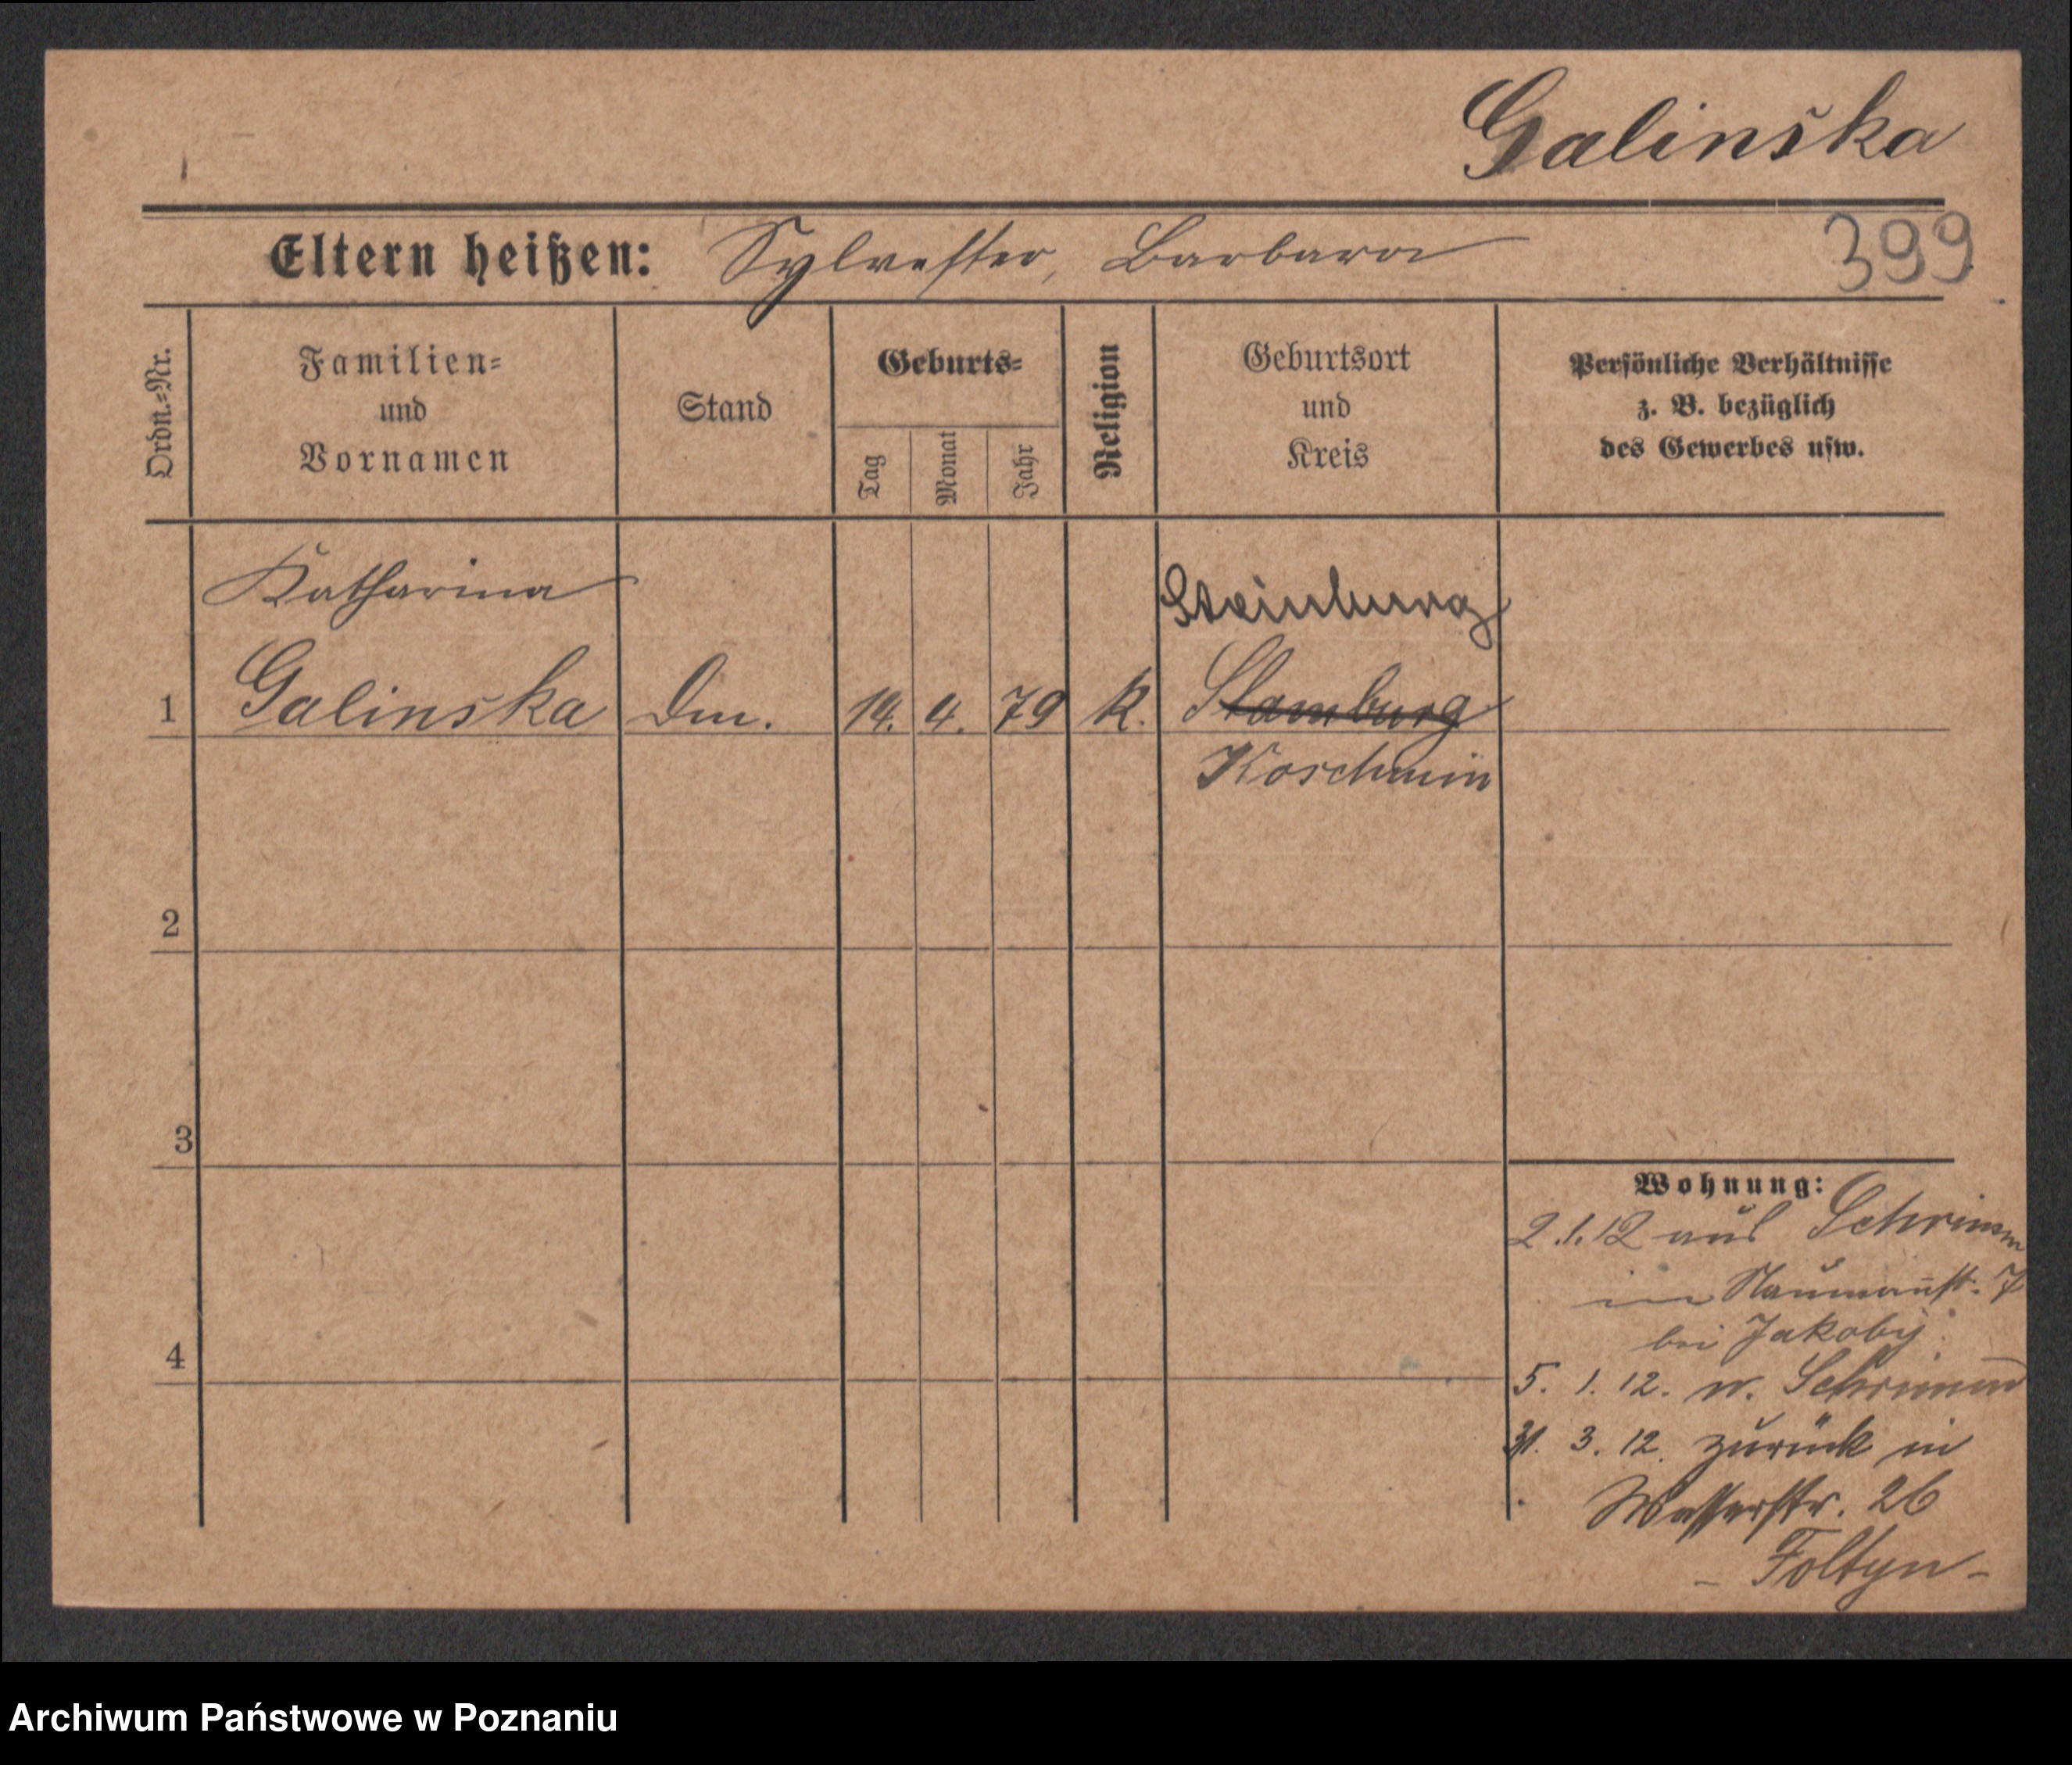 Galinska
Eltern heißen: Sylvester, Barbara
399
Ordn.-Nr.
Familien-
und
Vornamen
Stand
Geburts-
Tag
Monat
Jahr
Religion
Geburtsort
und
Kreis
Persönliche Verhältnisse
z. B. bezüglich
des Gewerbes usw.
Katharina
Steinburg
1 Galinska Dm. 14. 4. 79 k. Stamburg
Koschmin
2
3
4
Wohnung:
2.1.12 aus Schrimm
in Naumannst. 7
bei Jakoby
5. 1. 12. n. Schrimm
31. 3. 12. zurück in
Wasserstr. 26
- Foltyn -
Archiwum Państwowe w Poznaniu